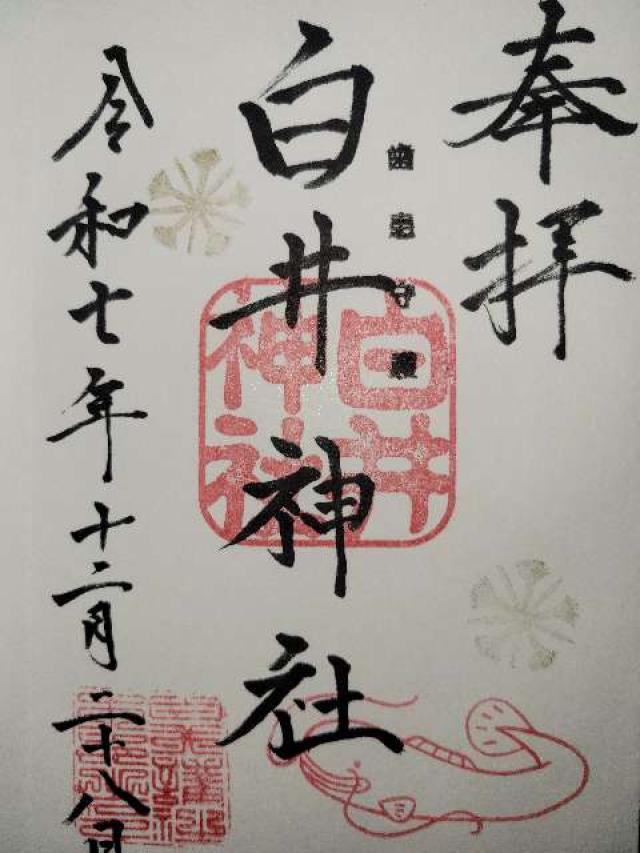 奉拝
歯患守護
白井神社
白井神社
令和七年十二月二十八日